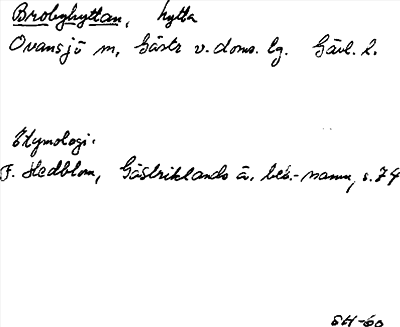 Brobyhyttan, hytta
Ovansjö sn, Gästr v. doms. lg. Gävl. l.
Etymologi.
F. Hedblom, Gästriklands ä. beb.-namn, s. 74
SH-60